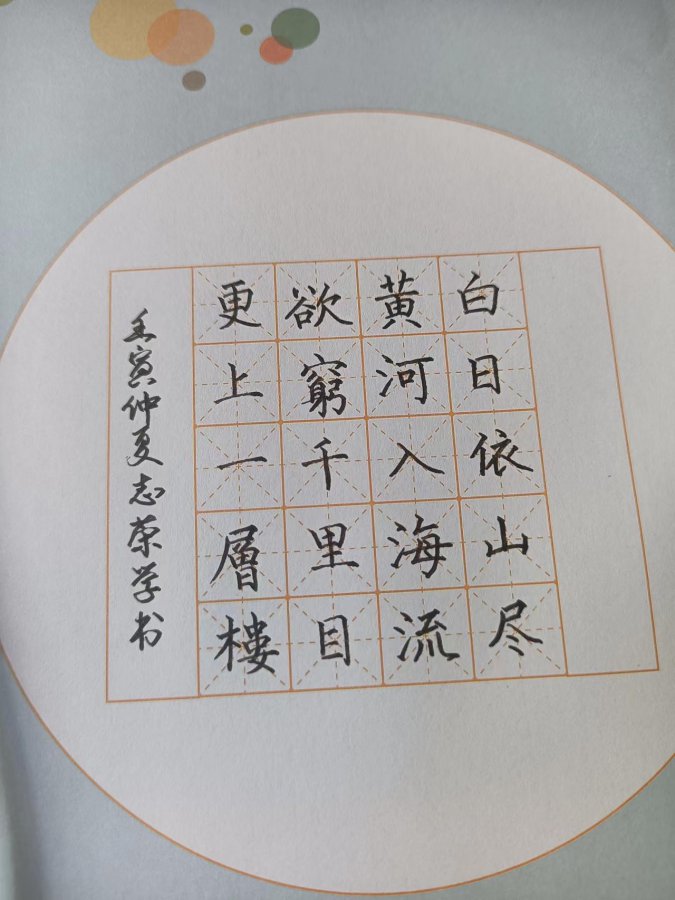 白日依山尽
黄河入海流
欲窮千里目
更上一層樓
壬寅仲夏志荣学书